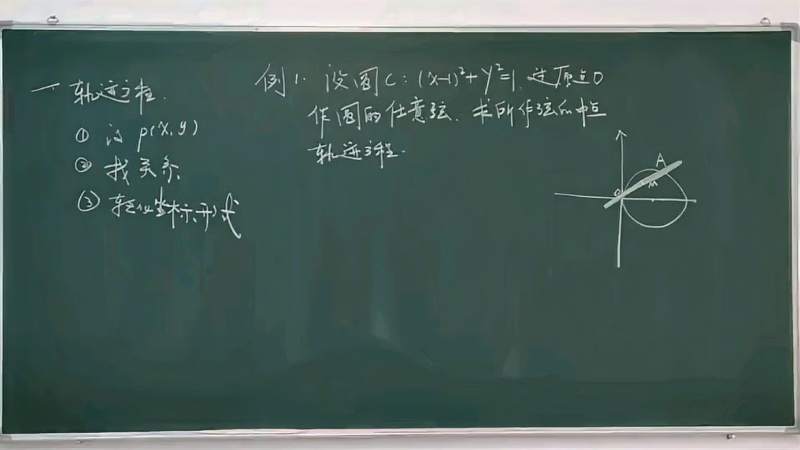 一 轨迹方程.
① 设 P(x,y)
② 找关系
③ 转化坐标示形式
例1. 设圆C:(x-1)²+y²=1, 过原点O
作圆的任意弦. 求所作弦的中点
轨迹方程.
A
M
O